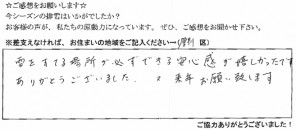 ☆ご感想をお願いします☆
今シーズンの排雪はいかがでしたか？
お客様の声が、私たちの原動力になっています。ぜひ、ご感想をお聞かせ下さい。
※差支えなければ、お住まいの地域をご記入ください→(厚別 区)
雪をすてる場所が必ずできる安心感が嬉しかったです
ありがとうございました。 来年お願い致します
ご協力ありがとうございました！